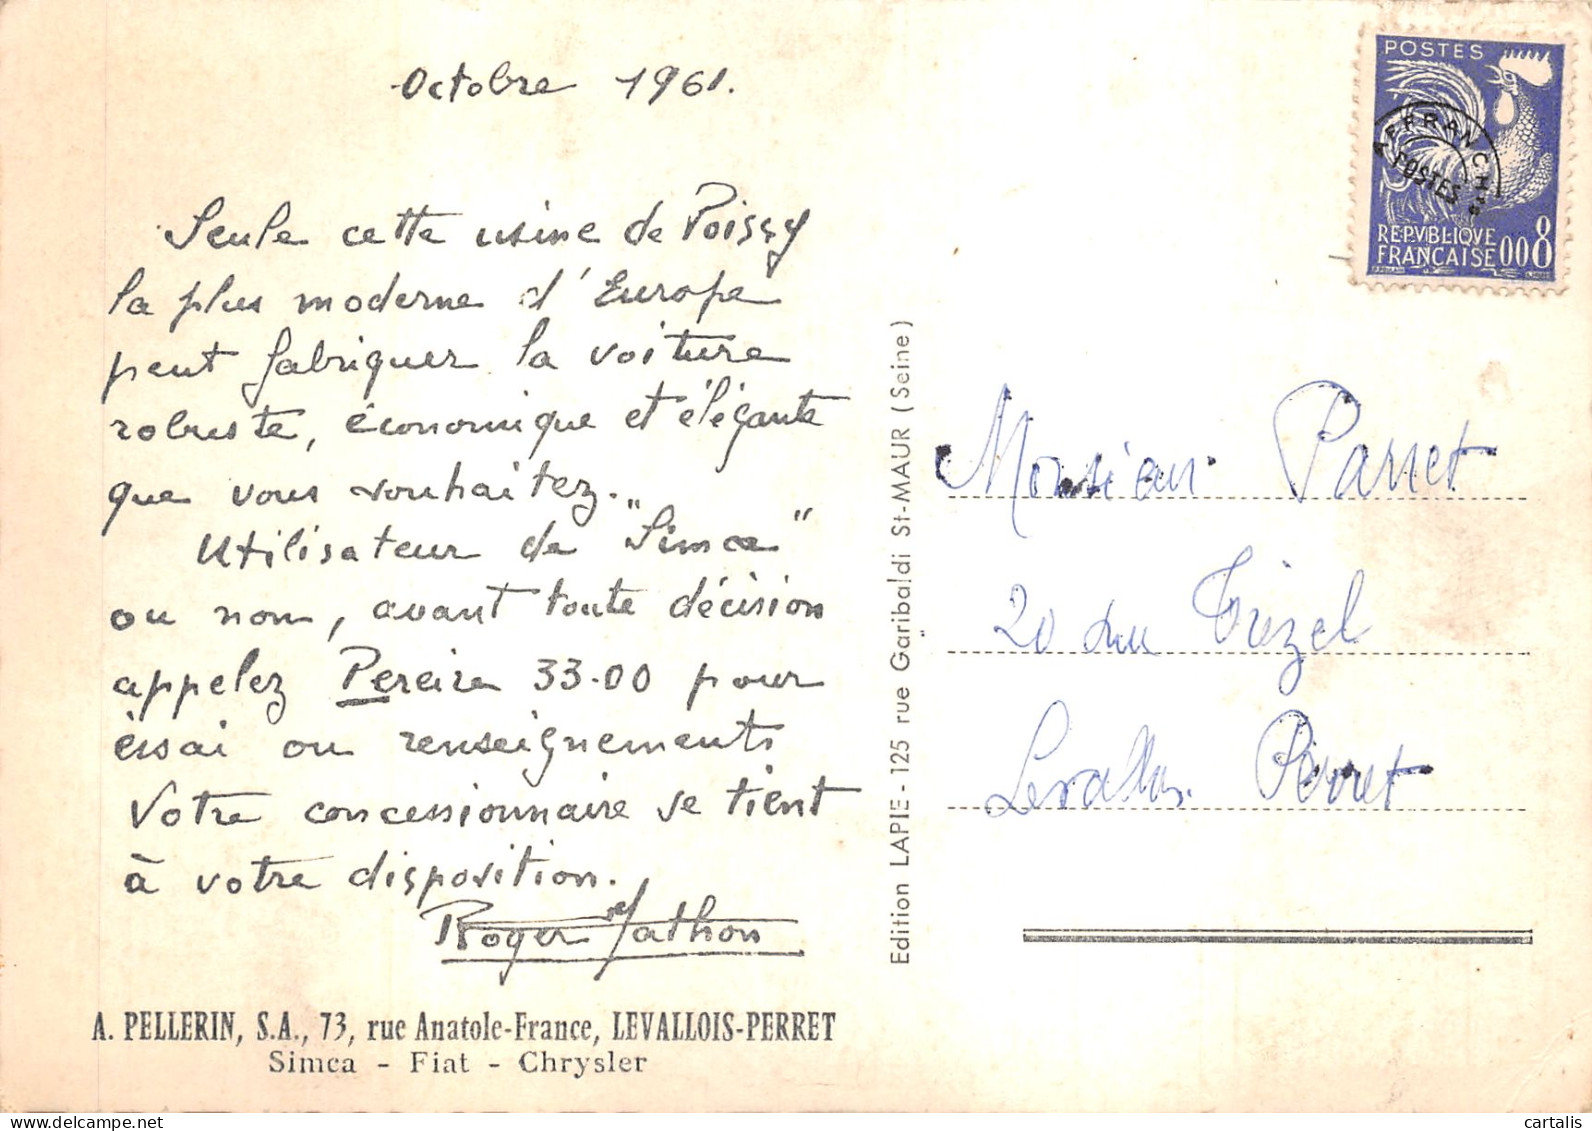 Octobre 1961.
Seule cette usine de Poissy
la plus moderne d'Europe
peut fabriquer la voiture
robuste, économique et élégante
que vous souhaitez.
Utilisateur de "Simca"
ou non, avant toute décision
appelez Pereire 33-00 pour
essai ou renseignements
Votre concessionnaire se tient
à votre disposition.
Roger Mathon
A. PELLERIN, S.A., 73, rue Anatole-France, LEVALLOIS-PERRET
Simca - Fiat - Chrysler
Edition LAPIE - 125 rue Garibaldi St-MAUR (Seine)
POSTES
AFFRANCHts
POSTES
REPVBLIQVE
FRANCAISE 0,08
Monsieur Parret
20 rue Trézel
Levallois Perret
cartalis